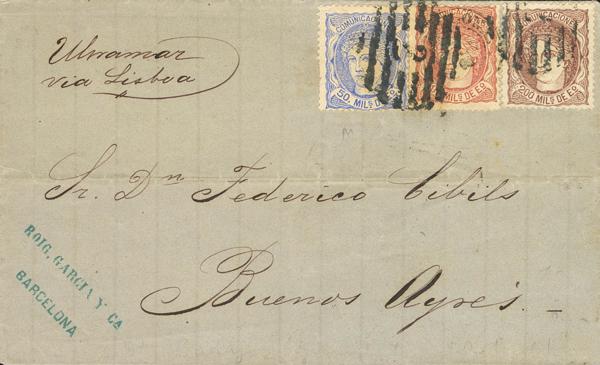 Ultramar
via Lisboa
COMUNICACIONES
50. MILS DE EO
MILS DE EO
COMUNICACIONES
200 MILS DE EO
Sr. Dn Federico Cibils
Buenos Ayres.
ROIG, GARCIA Y Ca
BARCELONA